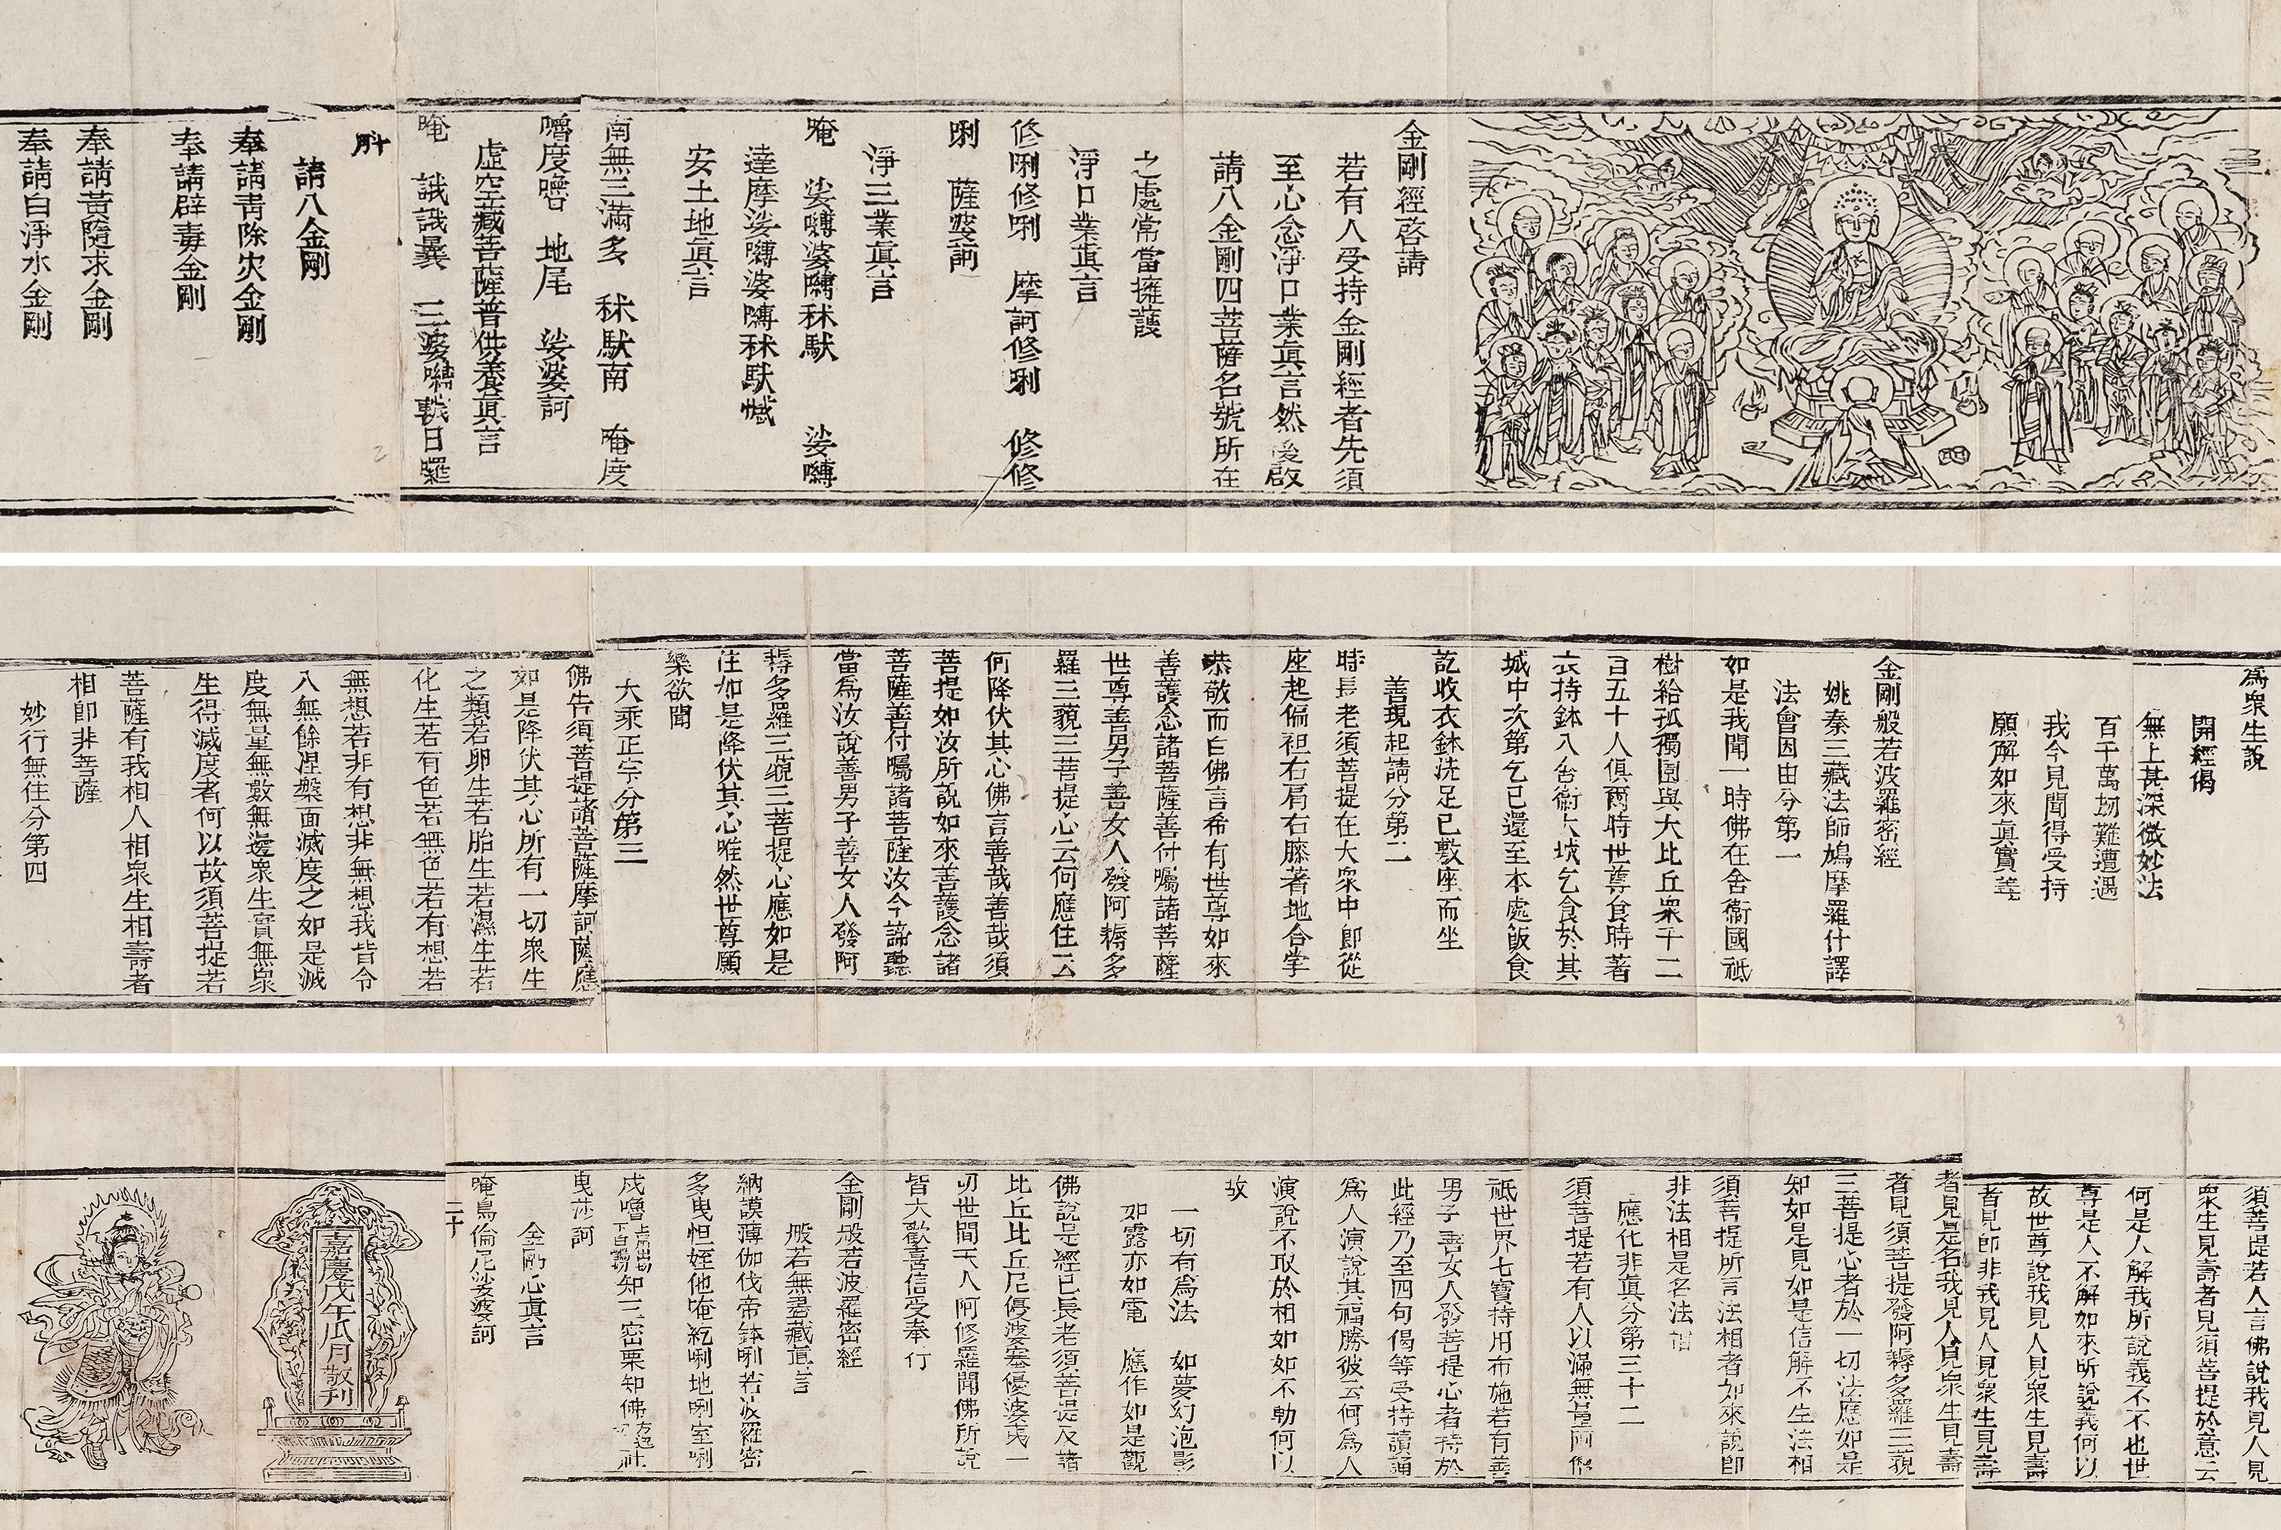 金剛經啓請
若有人受持金剛經者先須
至心念淨口業眞言然後啟
請八金剛四菩薩名號所在
之處常當擁護
淨口業眞言
修唎修唎　摩訶修唎　修修
唎　薩婆訶
淨三業眞言
唵　娑嚩婆嚩秫馱　娑嚩
達摩娑嚩婆嚩秫馱憾
安土地眞言
南無三滿多　秫馱南　唵度
嚕度嚕　地尾　娑婆訶
虛空藏菩薩普供養眞言
唵　誐誐曩　三婆嚩韈日羅
斛
請八金剛
奉請靑除灾金剛
奉請辟毒金剛
奉請黃隨求金剛
奉請白淨水金剛
2
爲衆生説
開經偈
無上甚深微妙法
百千萬刼難遭遇
我今見聞得受持
願解如來眞實義
金剛般若波羅密經
姚秦三藏法師鳩摩羅什譯
法會因由分第一
如是我聞一時佛在舍衞國祗
樹給孤獨園與大比丘衆千二
百五十人俱爾時世尊食時著
衣持鉢入舍衞大城乞食於其
城中次第乞已還至本處飯食
訖收衣鉢洗足已敷座而坐
善現起請分第二
時長老須菩提在大衆中卽從
座起偏袒右肩右膝著地合掌
恭敬而白佛言希有世尊如來
善護念諸菩薩善付囑諸菩薩
世尊善男子善女人發阿耨多
羅三藐三菩提心云何應住云
何降伏其心佛言善哉善哉須
菩提如汝所說如來善護念諸
菩薩善付囑諸菩薩汝今諦聽
當爲汝說善男子善女人發阿
耨多羅三藐三菩提心應如是
住如是降伏其心唯然世尊願
樂欲聞
大乘正宗分第三
佛告須菩提諸菩薩摩訶薩應
如是降伏其心所有一切衆生
之類若卵生若胎生若濕生若
化生若有色若無色若有想若
無想若非有想非無想我皆令
入無餘涅槃而滅度之如是滅
度無量無數無邊衆生實無衆
生得滅度者何以故須菩提若
菩薩有我相人相衆生相壽者
相卽非菩薩
妙行無住分第四
3
須菩提若人言佛說我見人見
衆生見壽者見須菩提於意云
何是人解我所說義不不也世
尊是人不解如來所說義何以
故世尊說我見人見衆生見壽
者見卽非我見人見衆生見壽
者見是名我見人見衆生見壽
者見須菩提發阿耨多羅三藐
三菩提心者於一切法應如是
知如是見如是信解不生法相
須菩提所言法相者如來說卽
非法相是名法相
應化非眞分第三十二
須菩提若有人以滿無量阿僧
祗世界七寶持用布施若有善
男子善女人發菩提心者持於
此經乃至四句偈等受持讀誦
爲人演說其福勝彼云何爲人
演說不取於相如如不動何以
故
一切有爲法　如夢幻泡影
如露亦如電　應作如是觀
佛說是經已長老須菩提及諸
比丘比丘尼優婆塞優婆夷一
切世間天人阿修羅聞佛所說
皆大歡喜信受奉行
金剛般若波羅密經
般若無盡藏眞言
納謨薄伽伐帝鉢唎若波羅密
多曳怛姪他唵紇唎地唎室唎
戍嚕知三密栗知佛社
曳莎訶
金剛心眞言
唵烏倫尼娑婆訶
二十
嘉慶戊午瓜月敬刋